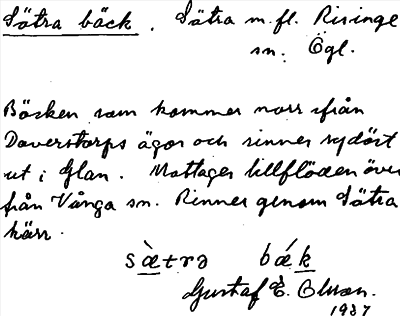 Sätra bäck. Sätra m.fl. Risinge
sn. Ögl.
Bäcken som kommer norr ifrån
Daverstorps ägor och rinner sydöst
ut i Glan. Mottager tillflöden över
från Vånga sn. Rinner genom Sätra
kärr.
sæ̀trə bǽk
Gustaf E. Olsson.
1937